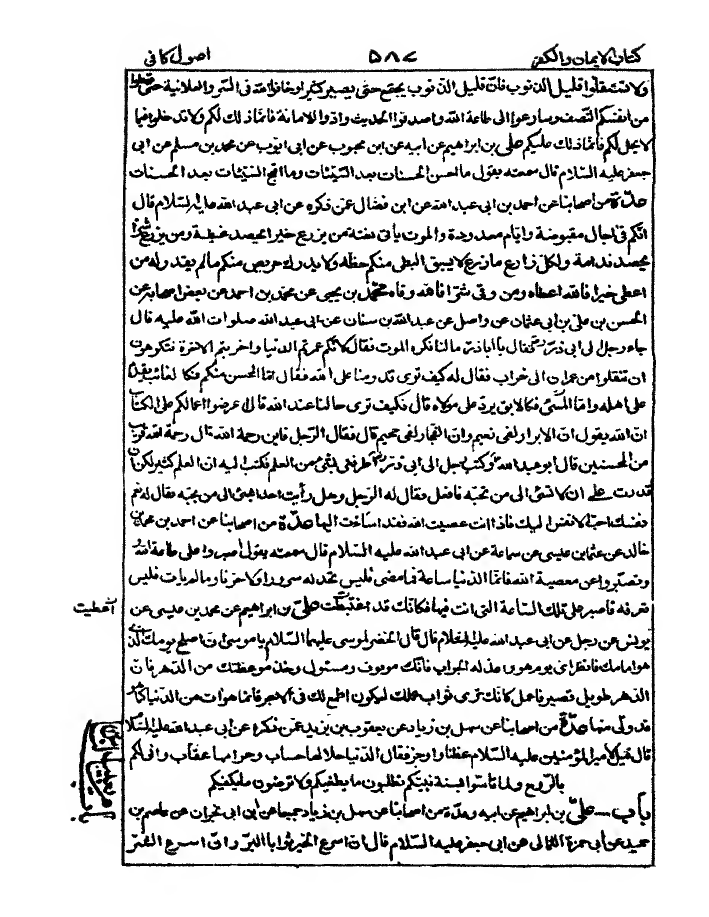 كتاب الايمان والكفر ٥٨٧ اصول كافى
ولا تستقلوا قليل الذنوب فان قليل الذنوب يجتمع حتى يصير كثيرا وخافوا الله فى السر والعلانية حتى تعطوا
من انفسكم النصف وسارعوا الى طاعة الله واصدقوا الحديث وادوا الامانة فانما ذلك لكم ولا تدخلوا فيما
لا يحل لكم فانما ذلك عليكم على بن ابراهيم عن ابيه عن ابن محبوب عن ابى ايوب عن محمد بن مسلم عن ابى
جعفر عليه السلام قال سمعته يقول ما احسن الحسنات بعد السيئات وما اقبح السيئات بعد الحسنات
عدة من اصحابنا عن احمد بن ابى عبد الله عن ابن فضال عمن ذكره عن ابى عبد الله عليه السلام قال
انكم فى اجال مقبوضة وايام معدودة والموت ياتى بغتة من يزرع خيرا يحصد غبطة ومن يزرع شرا
يحصد ندامة ولكل زارع ما زرع لا يسبق البطى منكم حظه ولا يدرك حريص منكم ما لم يقدر له من
اعطى خيرا فالله اعطاه ومن وقى شرا فالله وقاه محمد بن يحيى عن محمد بن احمد عن بعض اصحابه عن
الحسن بن على بن ابى عثمان عن واصل عن عبد الله بن سنان عن ابى عبد الله صلوات الله عليه قال
جاء رجل الى ابى ذر فقال يا اباذر ما لنا نكره الموت فقال لانكم عمرتم الدنيا واخربتم الاخرة فتكرهون
ان تنقلوا من عمران الى خراب فقال له كيف ترى قدومنا على الله فقال اما المحسن منكم فكالغائب يقدم
على اهله واما المسئ فكالابق يرد على مولاه قال فكيف ترى حالنا عند الله قال اعرضوا اعمالكم على الكتاب
ان الله يقول ان الابرار لفى نعيم وان الفجار لفى جحيم قال فقال الرجل فاين رحمة الله قال رحمة الله قريب
من المحسنين قال ابو عبد الله وكتب رجل الى ابى ذر اطرفنى بشئ من العلم فكتب اليه ان العلم كثير ولكن ان
قدرت على ان لا تسئ الى من تحبه فافعل فقال له الرجل وهل رأيت احدا يسئ الى من يحبه فقال له نعم
نفسك احب الانفس اليك فاذا انت عصيت الله فقد اسأت اليها عدة من اصحابنا عن احمد بن محمد بن
خالد عن عثمان بن عيسى عن سماعة عن ابى عبد الله عليه السلام قال سمعته يقول اصبروا على طاعة الله
وتصبروا عن معصية الله فانما الدنيا ساعة فما مضى فليس تجد له سرورا ولا حزنا وما لم يات فليس
تعرفه فاصبر على تلك الساعة التى انت فيها فكانك قد اغتبطت على بن ابراهيم عن محمد بن عيسى عن
اعطيت
يونس عن رجل عن ابى عبد الله عليه السلام قال قال الخضر لموسى عليهما السلام يا موسى ان اصلح يوميك الذى
هو امامك فانظر اى يوم هو واعد له الجواب فانك موقوف ومسئول وخذ موعظتك من الدهر فان
الدهر طويل قصير فاعمل كانك ترى ثواب عملك ليكون اطمع لك فى الاجر فانما هو ات من الدنيا كما
قد ولى منها عدة من اصحابنا عن سهل بن زياد عن يعقوب بن يزيد عمن ذكره عن ابى عبد الله عليه السلام
قال قيل لامير المؤمنين عليه السلام عظنا واوجز فقال الدنيا حلالها حساب وحرامها عقاب وانى لكم
بالروح ولما تاسوا بسنة نبيكم تطلبون ما يطغيكم ولا ترضون ما يكفيكم
باب — على بن ابراهيم عن ابيه وعدة من اصحابنا عن سهل بن زياد جميعا عن ابن ابى نجران عن عاصم بن
حميد عن ابى حمزة الثمالى عن ابى جعفر عليه السلام قال ان اسرع الخير ثوابا البر وان اسرع الشر